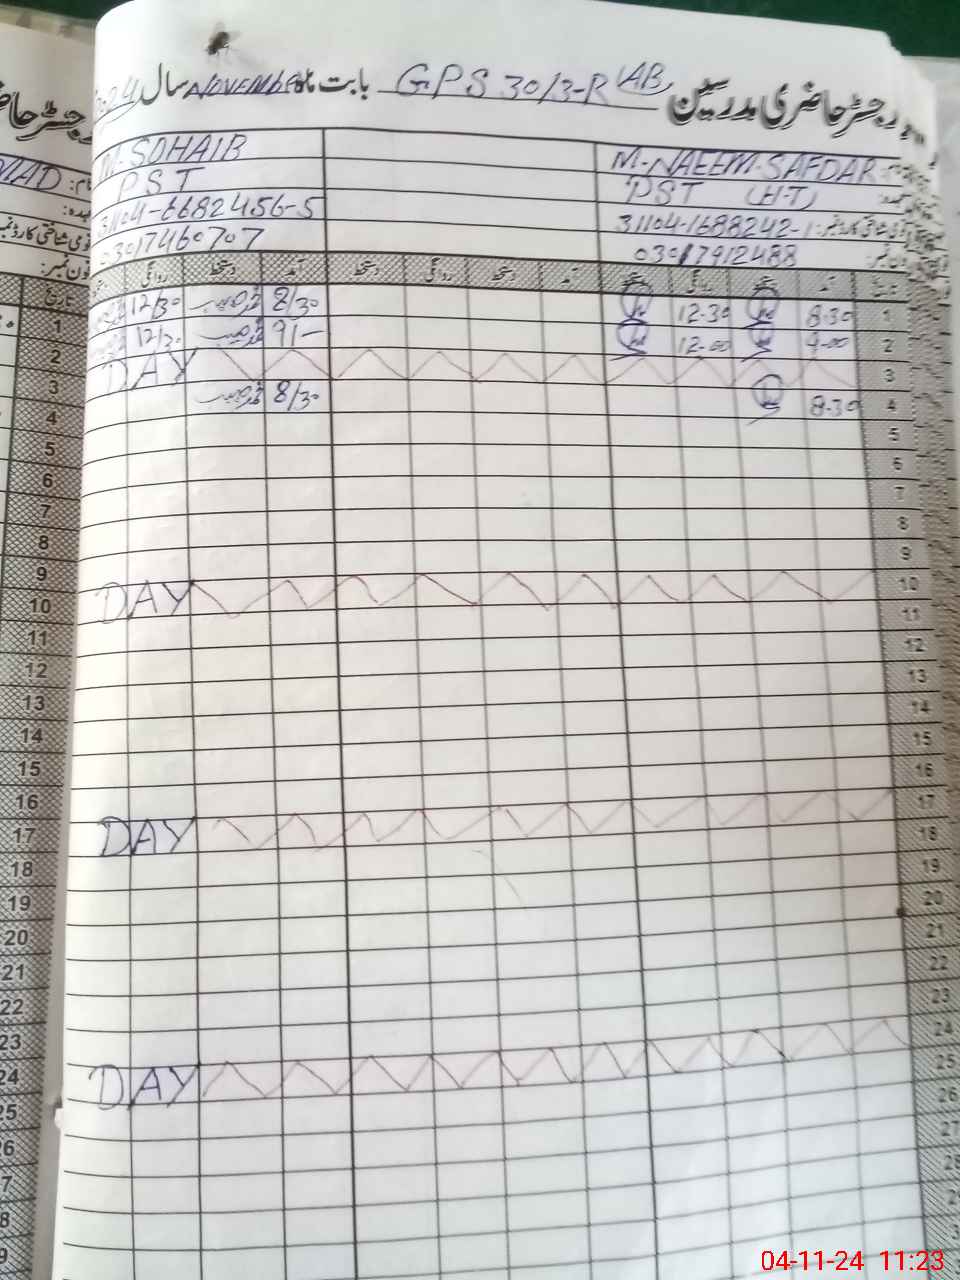 رجسٹر حاضری مدرسین GPS 30/3-R (AB) بابت ماہ NOVEMBER سال 2024
M-NAEEM-SAFDAR M-SOHAIB
PST (H-T) PST
31104-1688242-1 31104-6682456-5
03017912488 03017460707
تاریخ آمد دستخط روانگی دستخط آمد دستخط روانگی دستخط آمد دستخط روانگی
1 8-30 12-30 8/30 12/30
2 9-00 12-00 9/- 12/30
3 DAY
4 8-30 8/30
5
6
7
8
9
10 DAY
11
12
13
14
15
16
17 DAY
18
19
20
21
22
23
24 DAY
25
26
27
04-11-24 11:23